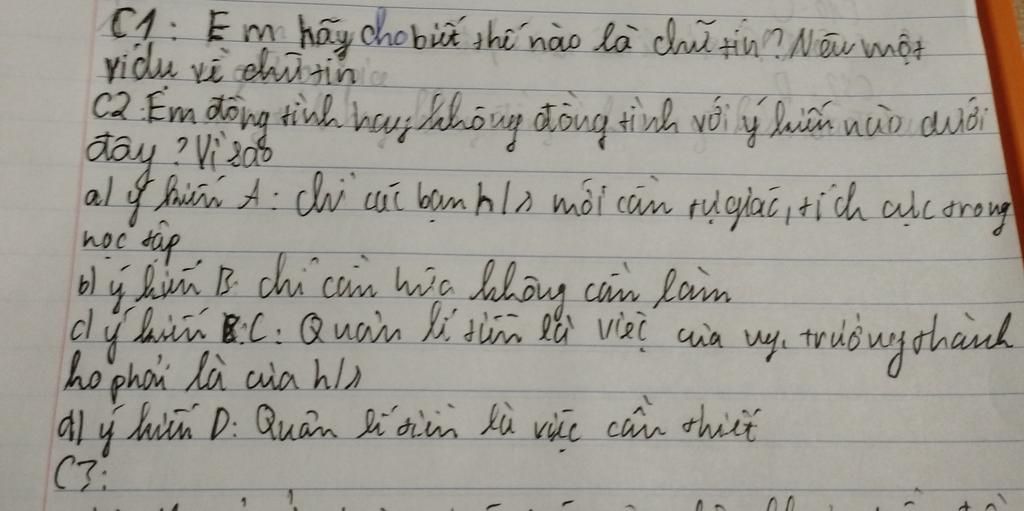 C1: Em hãy cho biết thế nào là chữ tín? Nêu một
ví dụ về chữ tín
C2: Em đồng tình hay không đồng tình với ý kiến nào dưới
đây? Vì sao
a) ý kiến A: chỉ các bạn h/s mới cần tự giác, tích cực trong
học tập
b) ý kiến B. chỉ cần hứa không cần làm
c) ý kiến C: Quản lí tiền là việc của trưởng thành
không phải là của h/s
d) ý kiến D: Quản lí tiền là việc cần thiết
C3: